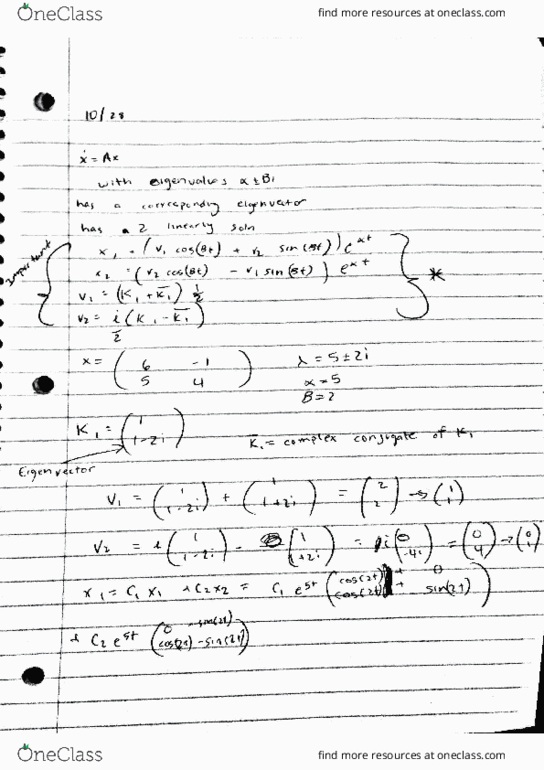 OneClass find more resources at oneclass.com
10/28
ẋ = Ax
with eigenvalues α ± Bi
has a corresponding eigenvector
has a 2 linearly soln
Important
x₁ = (v₁ cos(Bt) + v₂ sin(Bt)) e^αt
x₂ = (v₂ cos(Bt) - v₁ sin(Bt)) e^αt
*
v₁ = (K₁ + K̄₁) 1/2
v₂ = i/2 (K₁ - K̄₁)
x = ( 6 -1 ) λ = 5 ± 2i
( 5 4 ) α = 5
B = 2
K₁ = ( 1 )
( 1-2i ) K̄₁ = complex conjugate of K₁
Eigenvector
v₁ = ( 1 ; 1-2i ) + ( 1 ; 1+2i ) = ( 2 ; 2 ) → ( 1 ; 1 )
v₂ = i ( 1 ; 1-2i ) - ( 1 ; 1+2i ) = i ( 0 ; -4i ) = ( 0 ; 4 ) → ( 0 ; 1 )
x₁ = C₁ x₁ + C₂ x₂ = C₁ e^5t ( cos(2t) + 0 ; cos(2t) + sin(2t) )
+ C₂ e^5t ( 0 - sin(2t) ; cos(2t) - sin(2t) )
OneClass find more resources at oneclass.com